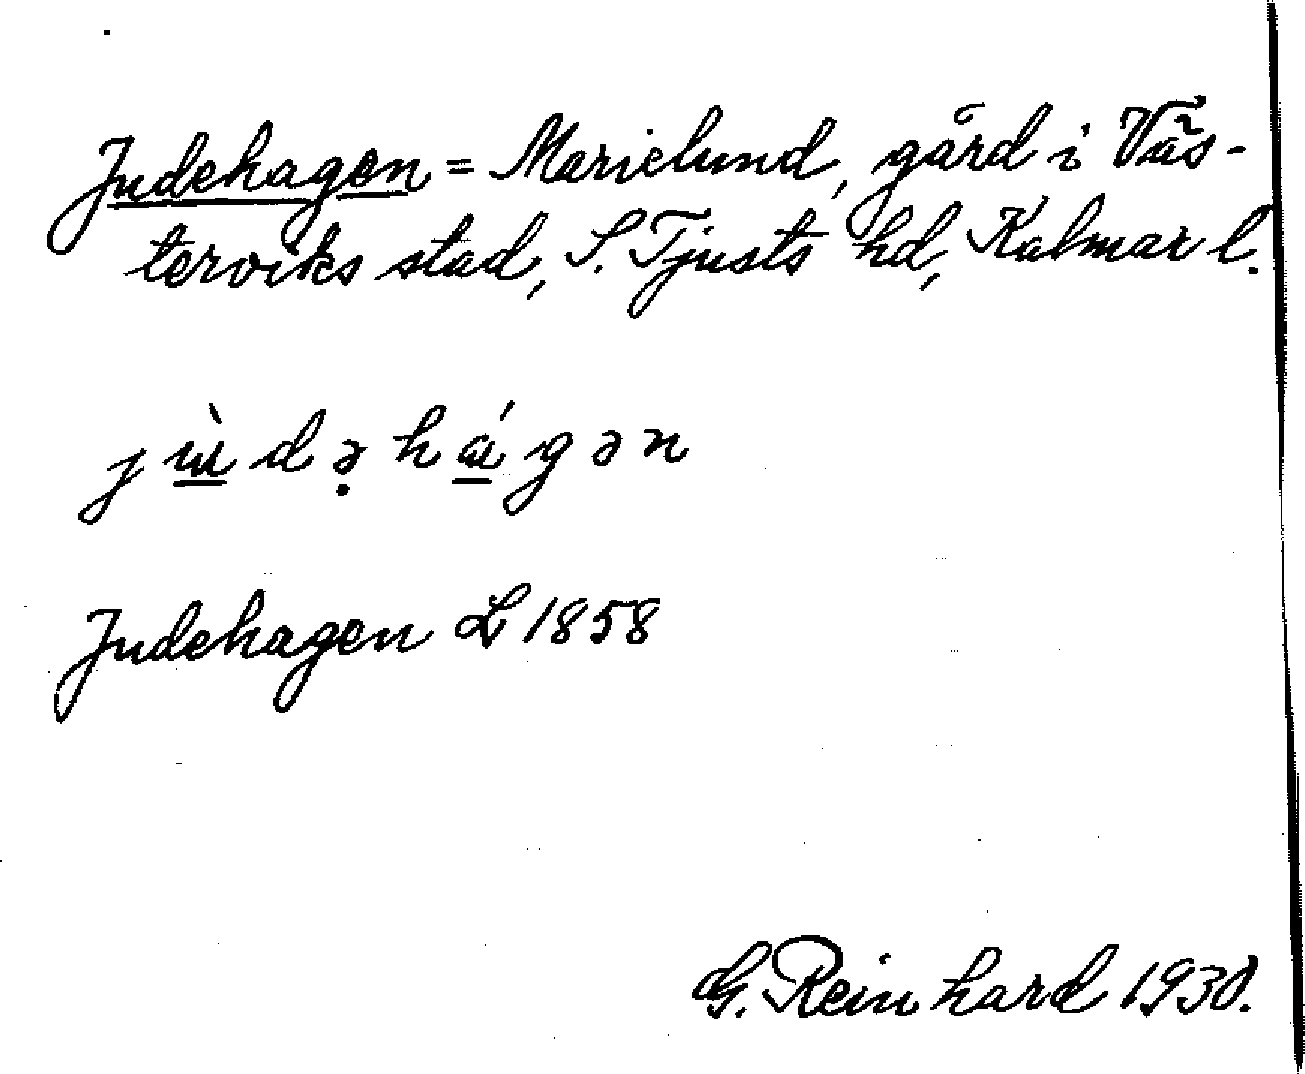 Judehagen = Marielund, gård i Väs-
terviks stad, S. Tjusts hd, Kalmar l.
jɯ̀də̣hágən
Judehagen L 1858
G. Reinhard 1930.